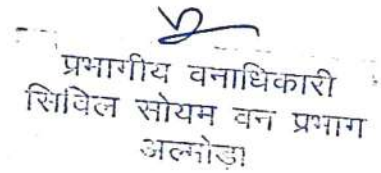 प्रभागीय वनाधिकारी
सिविल सोयम वन प्रभाग
अल्मोड़ा